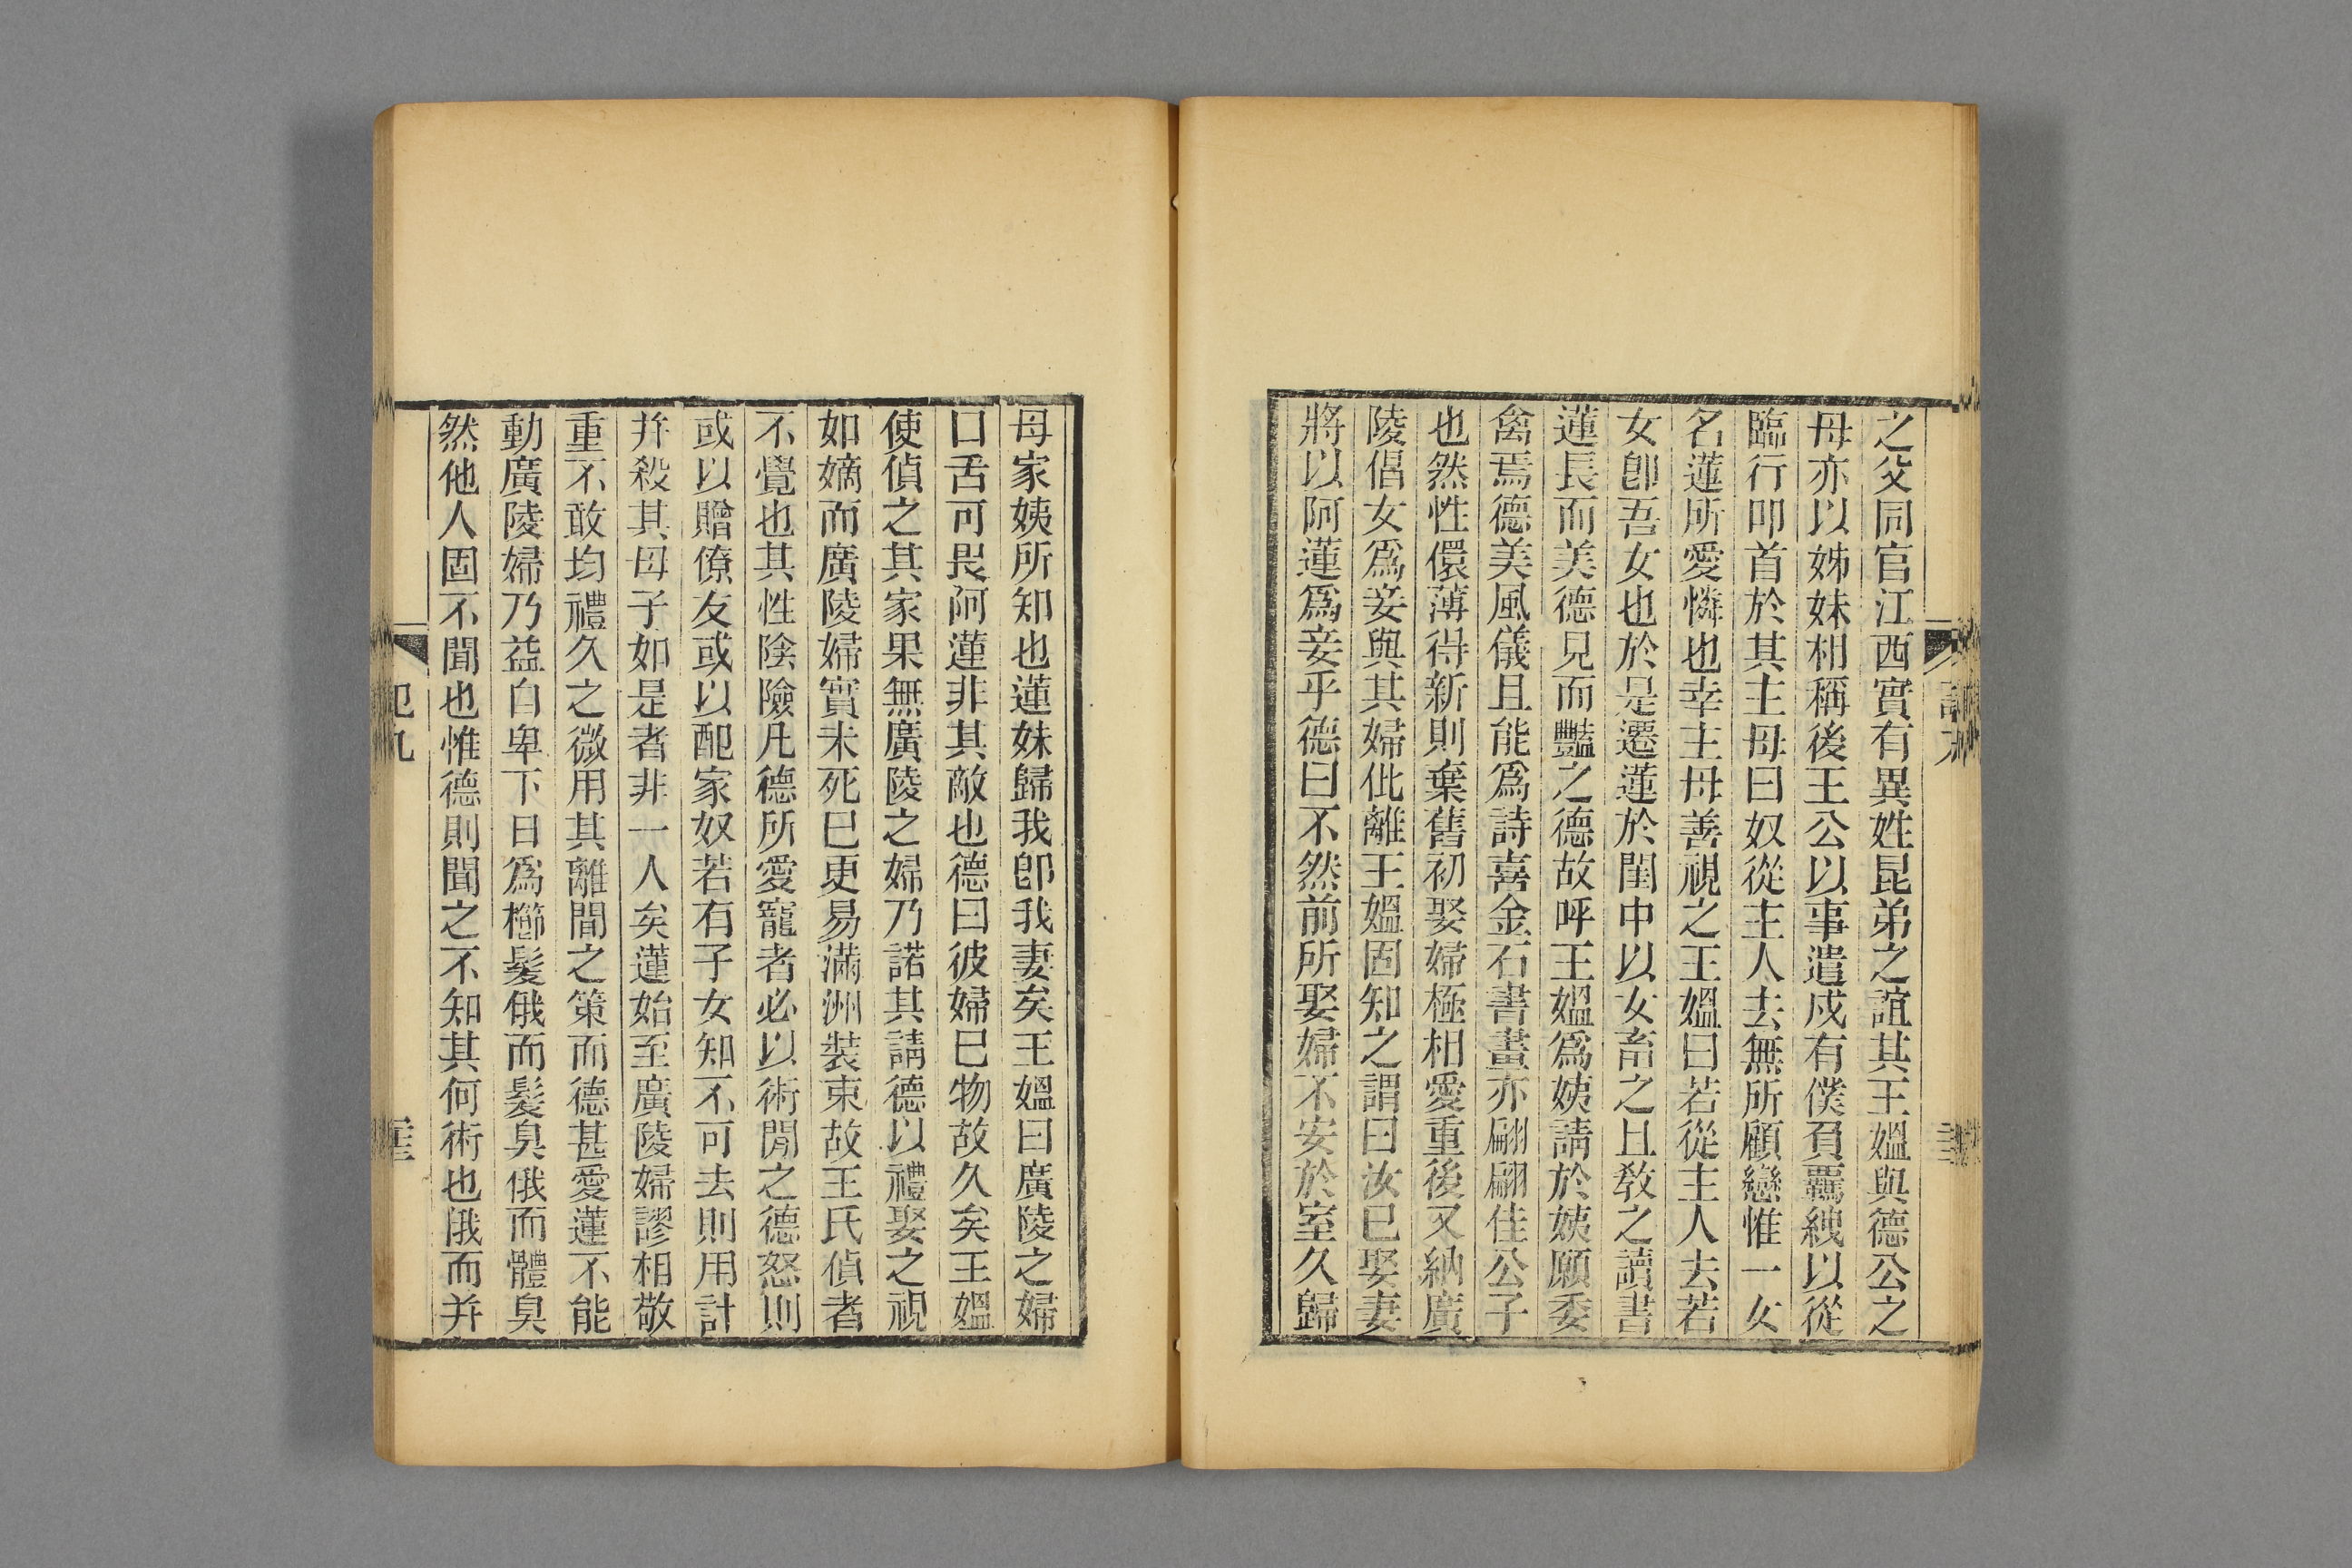 之父同官江西實有異姓昆弟之誼其王媼與德公之
母亦以姊妹相稱後王公以事遣戍有僕負羈紲以從
臨行叩首於其主母曰奴從主人去無所顧戀惟一女
名蓮所愛憐也幸主母善視之王媼曰若從主人去若
女卽吾女也於是遷蓮於閨中以女畜之且敎之讀書
蓮長而美德見而豔之德故呼王媼爲姨請於姨願委
禽焉德美風儀且能爲詩喜金石書畫亦翩翩佳公子
也然性儇薄得新則棄舊初娶婦極相愛重後又納廣
陵倡女爲妾與其婦仳離王媼固知之謂曰汝已娶妻
將以阿蓮爲妾乎德曰不然前所娶婦不安於室久歸
母家姨所知也蓮妹歸我卽我妻矣王媼曰廣陵之婦
口舌可畏阿蓮非其敵也德曰彼婦已物故久矣王媼
使偵之其家果無廣陵之婦乃諾其請德以禮娶之視
如嫡而廣陵婦實未死已更易滿洲裝束故王氏偵者
不覺也其性陰險凡德所愛寵者必以術閒之德怒則
或以贈僚友或以配家奴若有子女知不可去則用計
幷殺其母子如是者非一人矣蓮始至廣陵婦謬相敬
重不敢均禮久之微用其離間之策而德甚愛蓮不能
動廣陵婦乃益自卑下日爲櫛髮俄而髮臭俄而體臭
然他人固不聞也惟德則聞之不知其何術也俄而幷